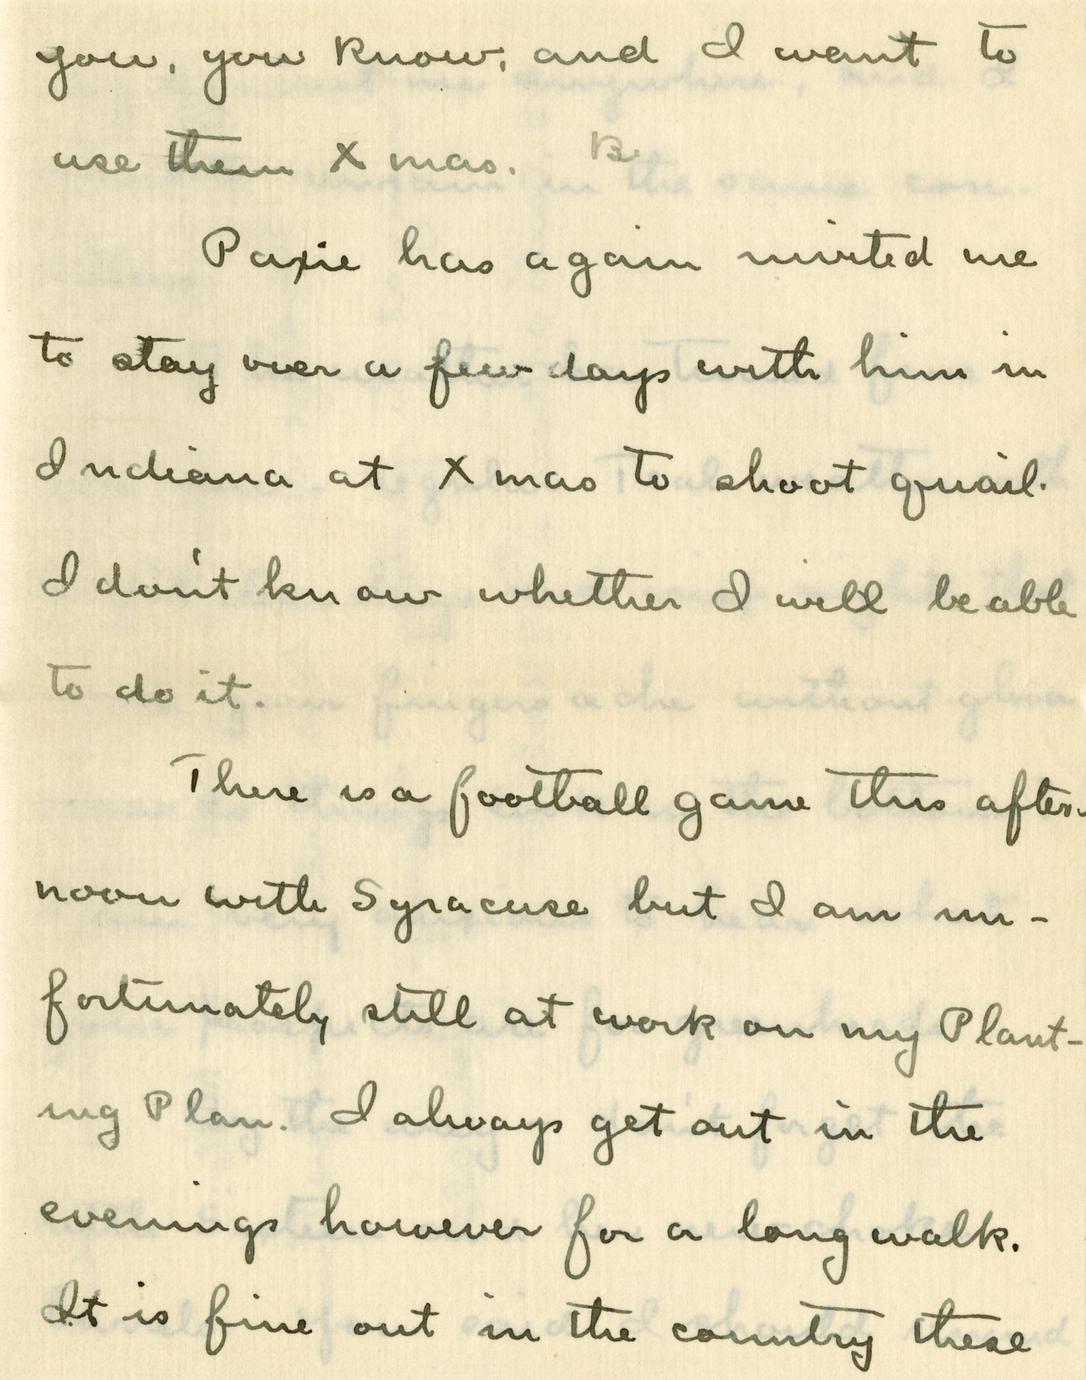 you, you know, and I want to
use them Xmas.
Paxie has again invited me
to stay over a few days with him in
Indiana at Xmas to shoot quail.
I don't know whether I will be able
to do it.
There is a football game this after-
noon with Syracuse but I am un-
fortunately still at work on my Plant-
ing Plan. I always get out in the
evenings however for a long walk.
It is fine out in the country these